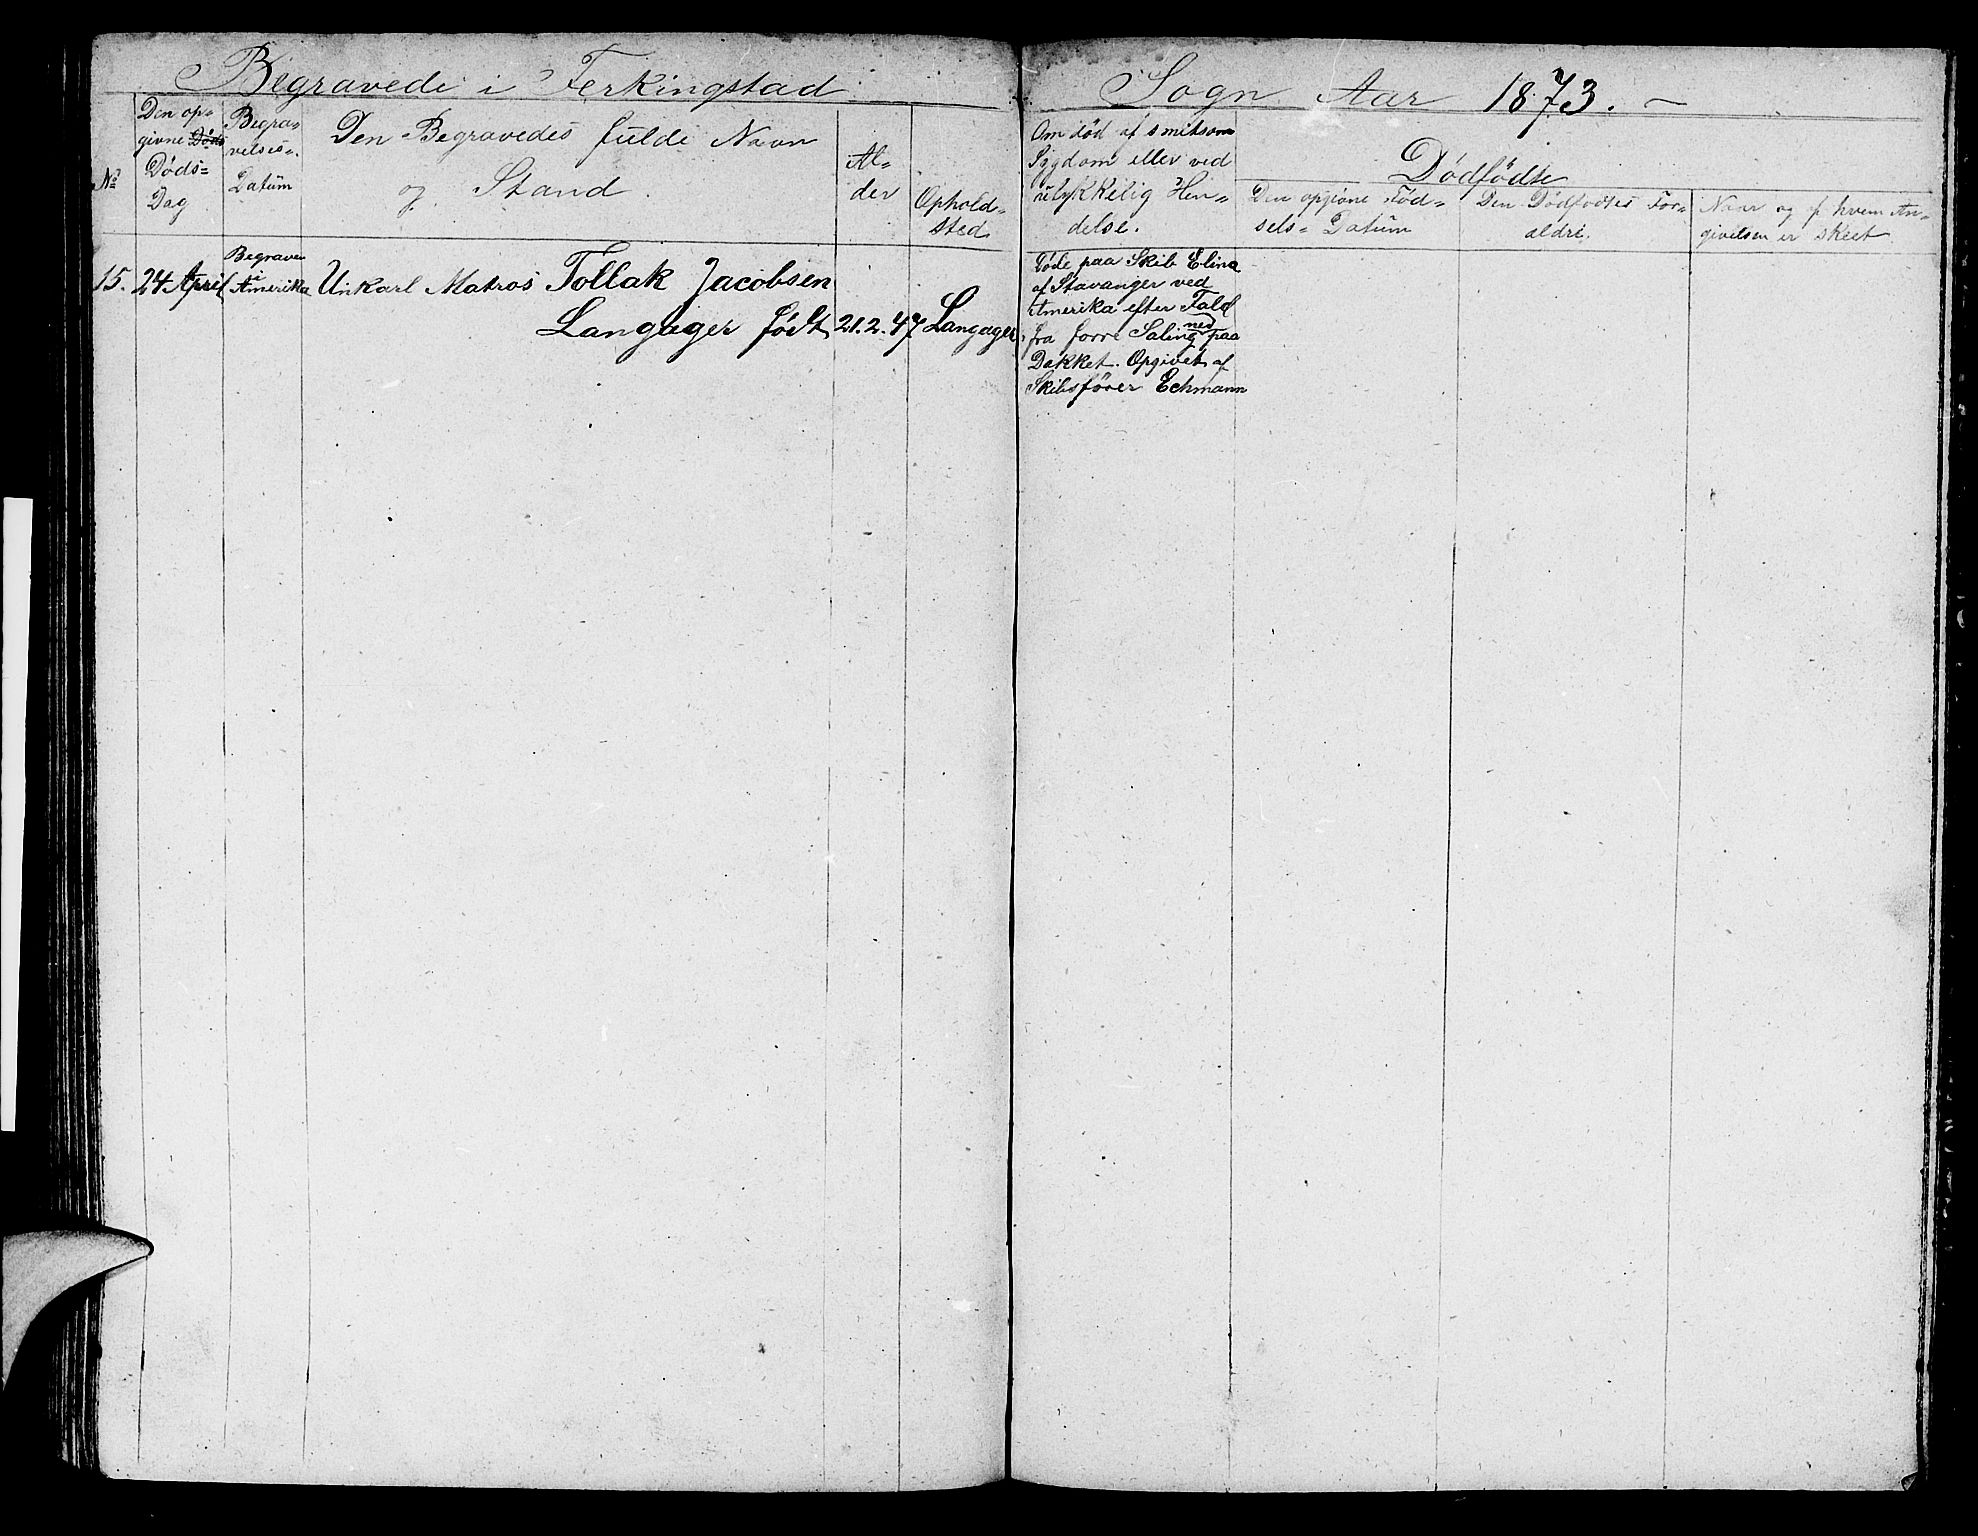 Begravede i Ferkingstad Sogn Aar 1873. —
No
Den op-
givne Døds
Døds-
Dag
Begra-
velses-
Datum
Den Begravedes fulde Navn
og Stand.
Al-
der
Ophold-
sted
Om død af smitsom
Sygdom eller ved
ulykkelig Hen-
delse.
Dødfødte
Den opgivne Fød-
sels- Datum
Den Dødfødtes For-
ældre.
Naar og af hvem An-
givelsen er skeet
15. 24 April
Begraven
i
Amerika
Unkarl Matros Tollak Jacobsen
Langager født 21.2.47 Langager
Døde paa Skib Elina
af Stavanger ved
Amerika efter Fald
fra forre Saling ned paa
Dækket. Opgivet af
Skibsfører Echmann